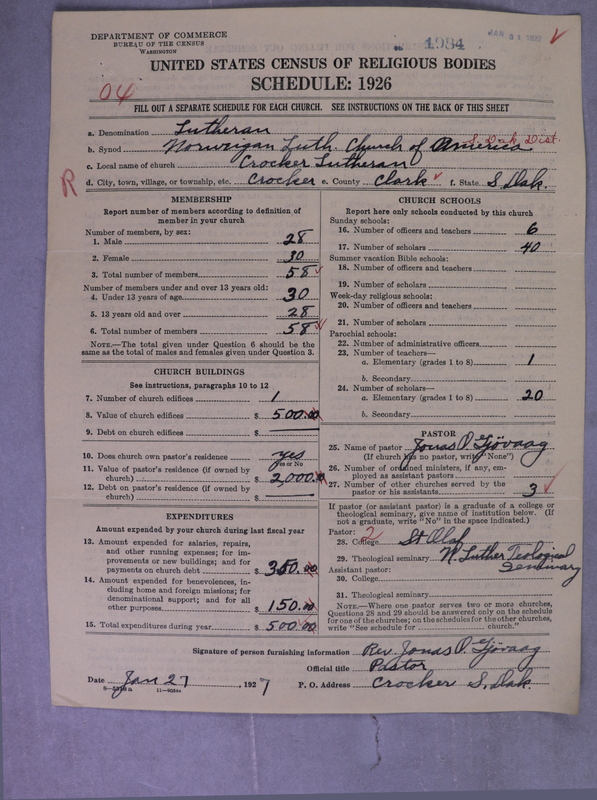 DEPARTMENT OF COMMERCE
BUREAU OF THE CENSUS
WASHINGTON
1984
JAN 31 1927
UNITED STATES CENSUS OF RELIGIOUS BODIES
SCHEDULE: 1926
04
FILL OUT A SEPARATE SCHEDULE FOR EACH CHURCH. SEE INSTRUCTIONS ON THE BACK OF THIS SHEET
a. Denomination Lutheran
b. Synod Norwegian Luth. Church of America S. Dak. Dist.
c. Local name of church Crocker Lutheran
R
d. City, town, village, or township, etc. Crocker e. County Clark f. State S. Dak.
MEMBERSHIP
Report number of members according to definition of
member in your church
Number of members, by sex:
1. Male 28
2. Female 30
3. Total number of members 58
Number of members under and over 13 years old:
4. Under 13 years of age 30
5. 13 years old and over 28
6. Total number of members 58
NOTE.—The total given under Question 6 should be the
same as the total of males and females given under Question 3.
CHURCH BUILDINGS
See instructions, paragraphs 10 to 12
7. Number of church edifices 1
8. Value of church edifices $ 500.00
9. Debt on church edifices $
10. Does church own pastor's residence? yes
Yes or No
11. Value of pastor's residence (if owned by
church) $ 2,000.
12. Debt on pastor's residence (if owned by
church) $
EXPENDITURES
Amount expended by your church during last fiscal year
13. Amount expended for salaries, repairs,
and other running expenses; for im-
provements or new buildings; and for
payments on church debt $ 350.00
14. Amount expended for benevolences, in-
cluding home and foreign missions; for
denominational support; and for all
other purposes $ 150.00
15. Total expenditures during year $ 500.00
CHURCH SCHOOLS
Report here only schools conducted by this church
Sunday schools:
16. Number of officers and teachers 6
17. Number of scholars 40
Summer vacation Bible schools:
18. Number of officers and teachers
19. Number of scholars
Week-day religious schools:
20. Number of officers and teachers
21. Number of scholars
Parochial schools:
22. Number of administrative officers
23. Number of teachers—
a. Elementary (grades 1 to 8) 1
b. Secondary
24. Number of scholars—
a. Elementary (grades 1 to 8) 20
b. Secondary
PASTOR
25. Name of pastor Jonas O. Gjövaag
(If church has no pastor, write "None")
26. Number of ordained ministers, if any, em-
ployed as assistant pastors
27. Number of other churches served by the
pastor or his assistants 3
If pastor (or assistant pastor) is a graduate of a college or
theological seminary, give name of institution below. (If
not a graduate, write "No" in the space indicated.)
Pastor: 2
28. College St Olaf
29. Theological seminary N. Luther Teological
Seminary
Assistant pastor:
30. College
31. Theological seminary
NOTE.—Where one pastor serves two or more churches,
Questions 28 and 29 should be answered only on the schedule
for one of the churches; on the schedules for the other churches,
write "See schedule for church."
Signature of person furnishing information Rev. Jonas O. Gjövaag
Official title Pastor
Date Jan 27, 1927 P. O. Address Crocker S. Dak.